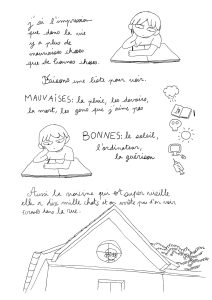 j'ai l'impression
que dans la vie
y a plus de
mauvaises choses
que de bonnes choses.
Faisons une liste pour voir.
MAUVAISES: la pluie, les devoirs,
la mort, les gens que j'aime pas
BONNES: le soleil,
l'ordinateur,
la guérison
Aussi la voisine qui est super vieille
elle a dix mille chats et on arrête pas d'en voir
dans la rue.